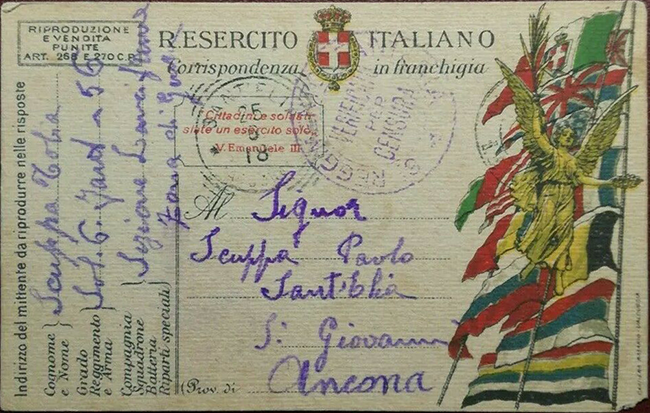 RIPRODUZIONE
E VENDITA
PUNITE
ART. 268 E 270 C.P.
R. ESERCITO ITALIANO
Corrispondenza in franchigia
Cittadini e soldati
siate un esercito solo.
V. Emanuele III.
25
18
REGGIO
VERIFICATO
PER
CENSURA
Al Signor
Scuppa Paolo
Sant'Elia
S. Giovanni
(Prov. di Ancona
Indirizzo del mittente da riprodurre nelle risposte
Cognome
e Nome
Scuppa
Grado
Reggimento
e Arma
Sol. 6. Fant
Compagnia
Squadrone
Batteria
Riparti speciali
Sezione Lancifiamme
Zona di